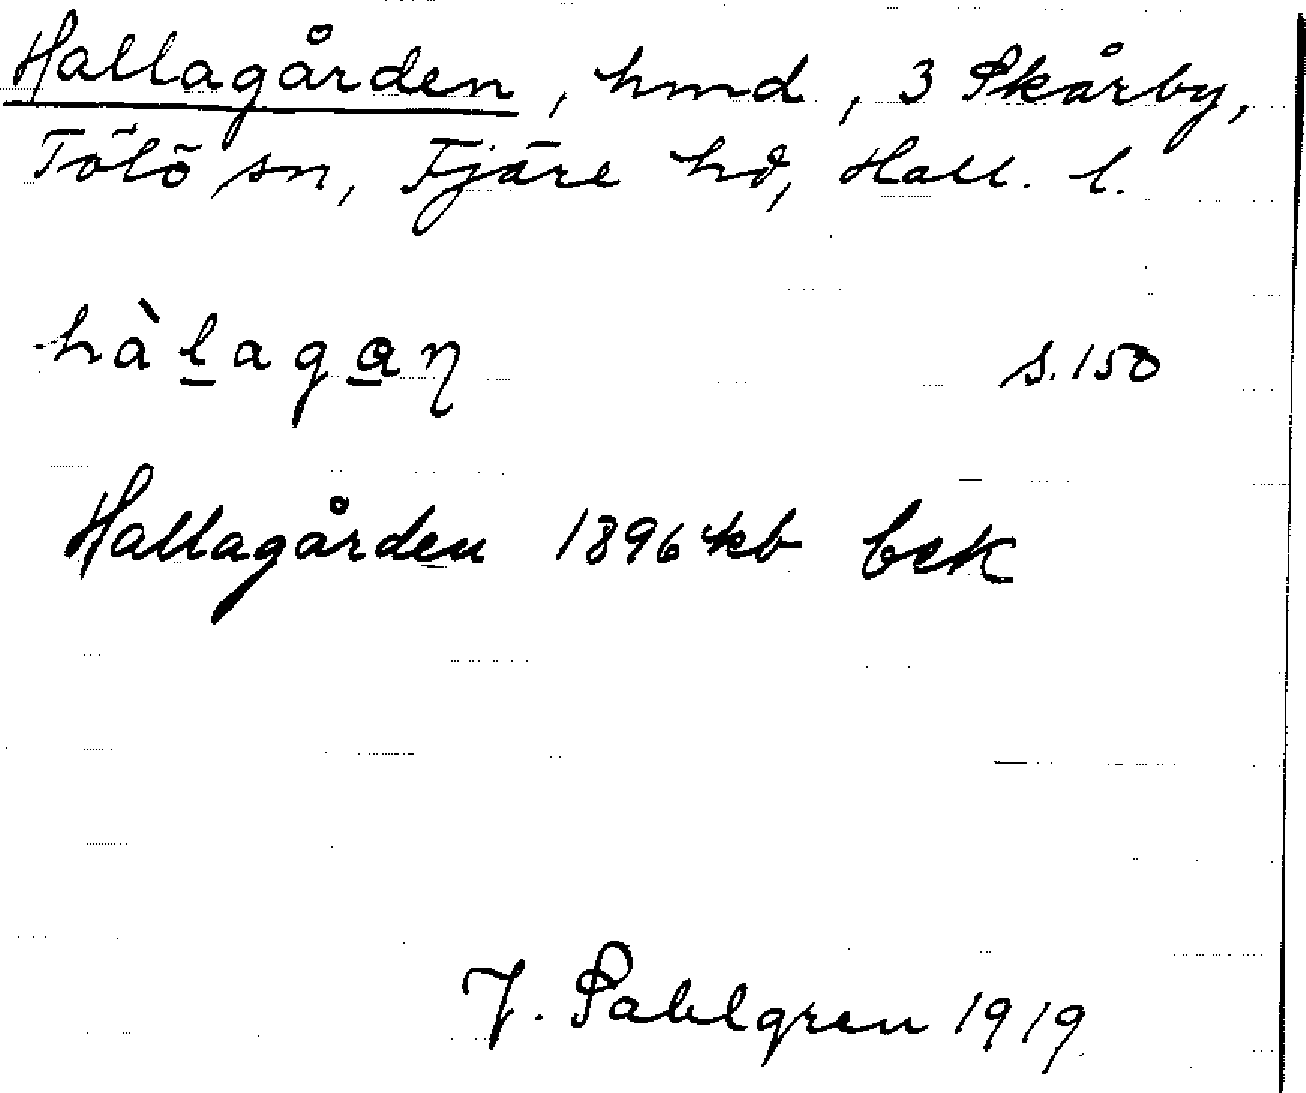 Hallagården, hmd, 3 Skårby,
Tölö sn, Fjäre hd, Hall. l.
hàl̲aga̲ŋ s. 150
Hallagården 1896 kb bek
J. Sahlgren 1919